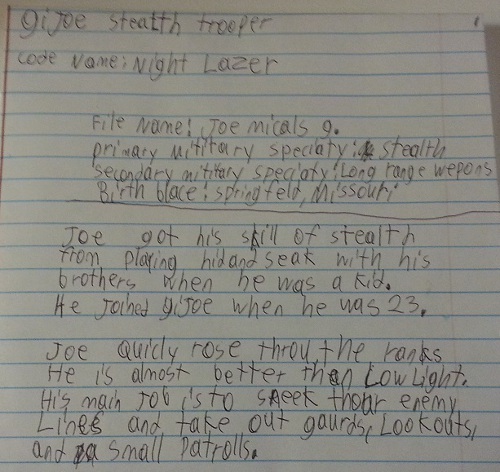 GiJoe stealth trooper
code Name: Night Lazer
File Name: Joe micals g.
primary mititary speciaty: stealth
secondary mititary speciaty: Long range wepons
Birth blace: springfeld, Missouri
Joe got his skill of stealth
from playing hid and seak with his
brothers when he was a kid.
He Joined GiJoe when he was 23.
Joe Quicly rose throu the ranks
He is almost better than Low Light.
His main Job is to sneek thour enemy
Lines and take out gaurds, Lookouts,
and small Patrolls.